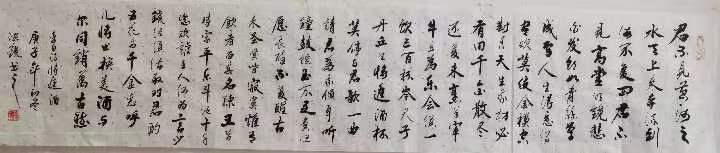 君不見黃河之
水天上來奔流到
海不復回君不
見高堂明鏡悲
白髮朝如青絲暮
成雪人生得意須
盡歡莫使金樽空
對月天生我材必
有用千金散盡
還復來烹羊宰
牛且為樂會須一
飲三百杯岑夫子
丹丘生將進酒杯
莫停與君歌一曲
請君為我傾耳聽
鐘鼓饌玉不足貴但
願長醉不願醒古
來聖賢皆寂寞惟有
飲者留其名陳王昔
時宴平樂斗酒十千
恣歡謔主人何為言少
錢徑須沽取對君酌
五花馬千金裘呼
兒將出換美酒與
爾同銷萬古愁
李白詩將進酒
庚子年初冬